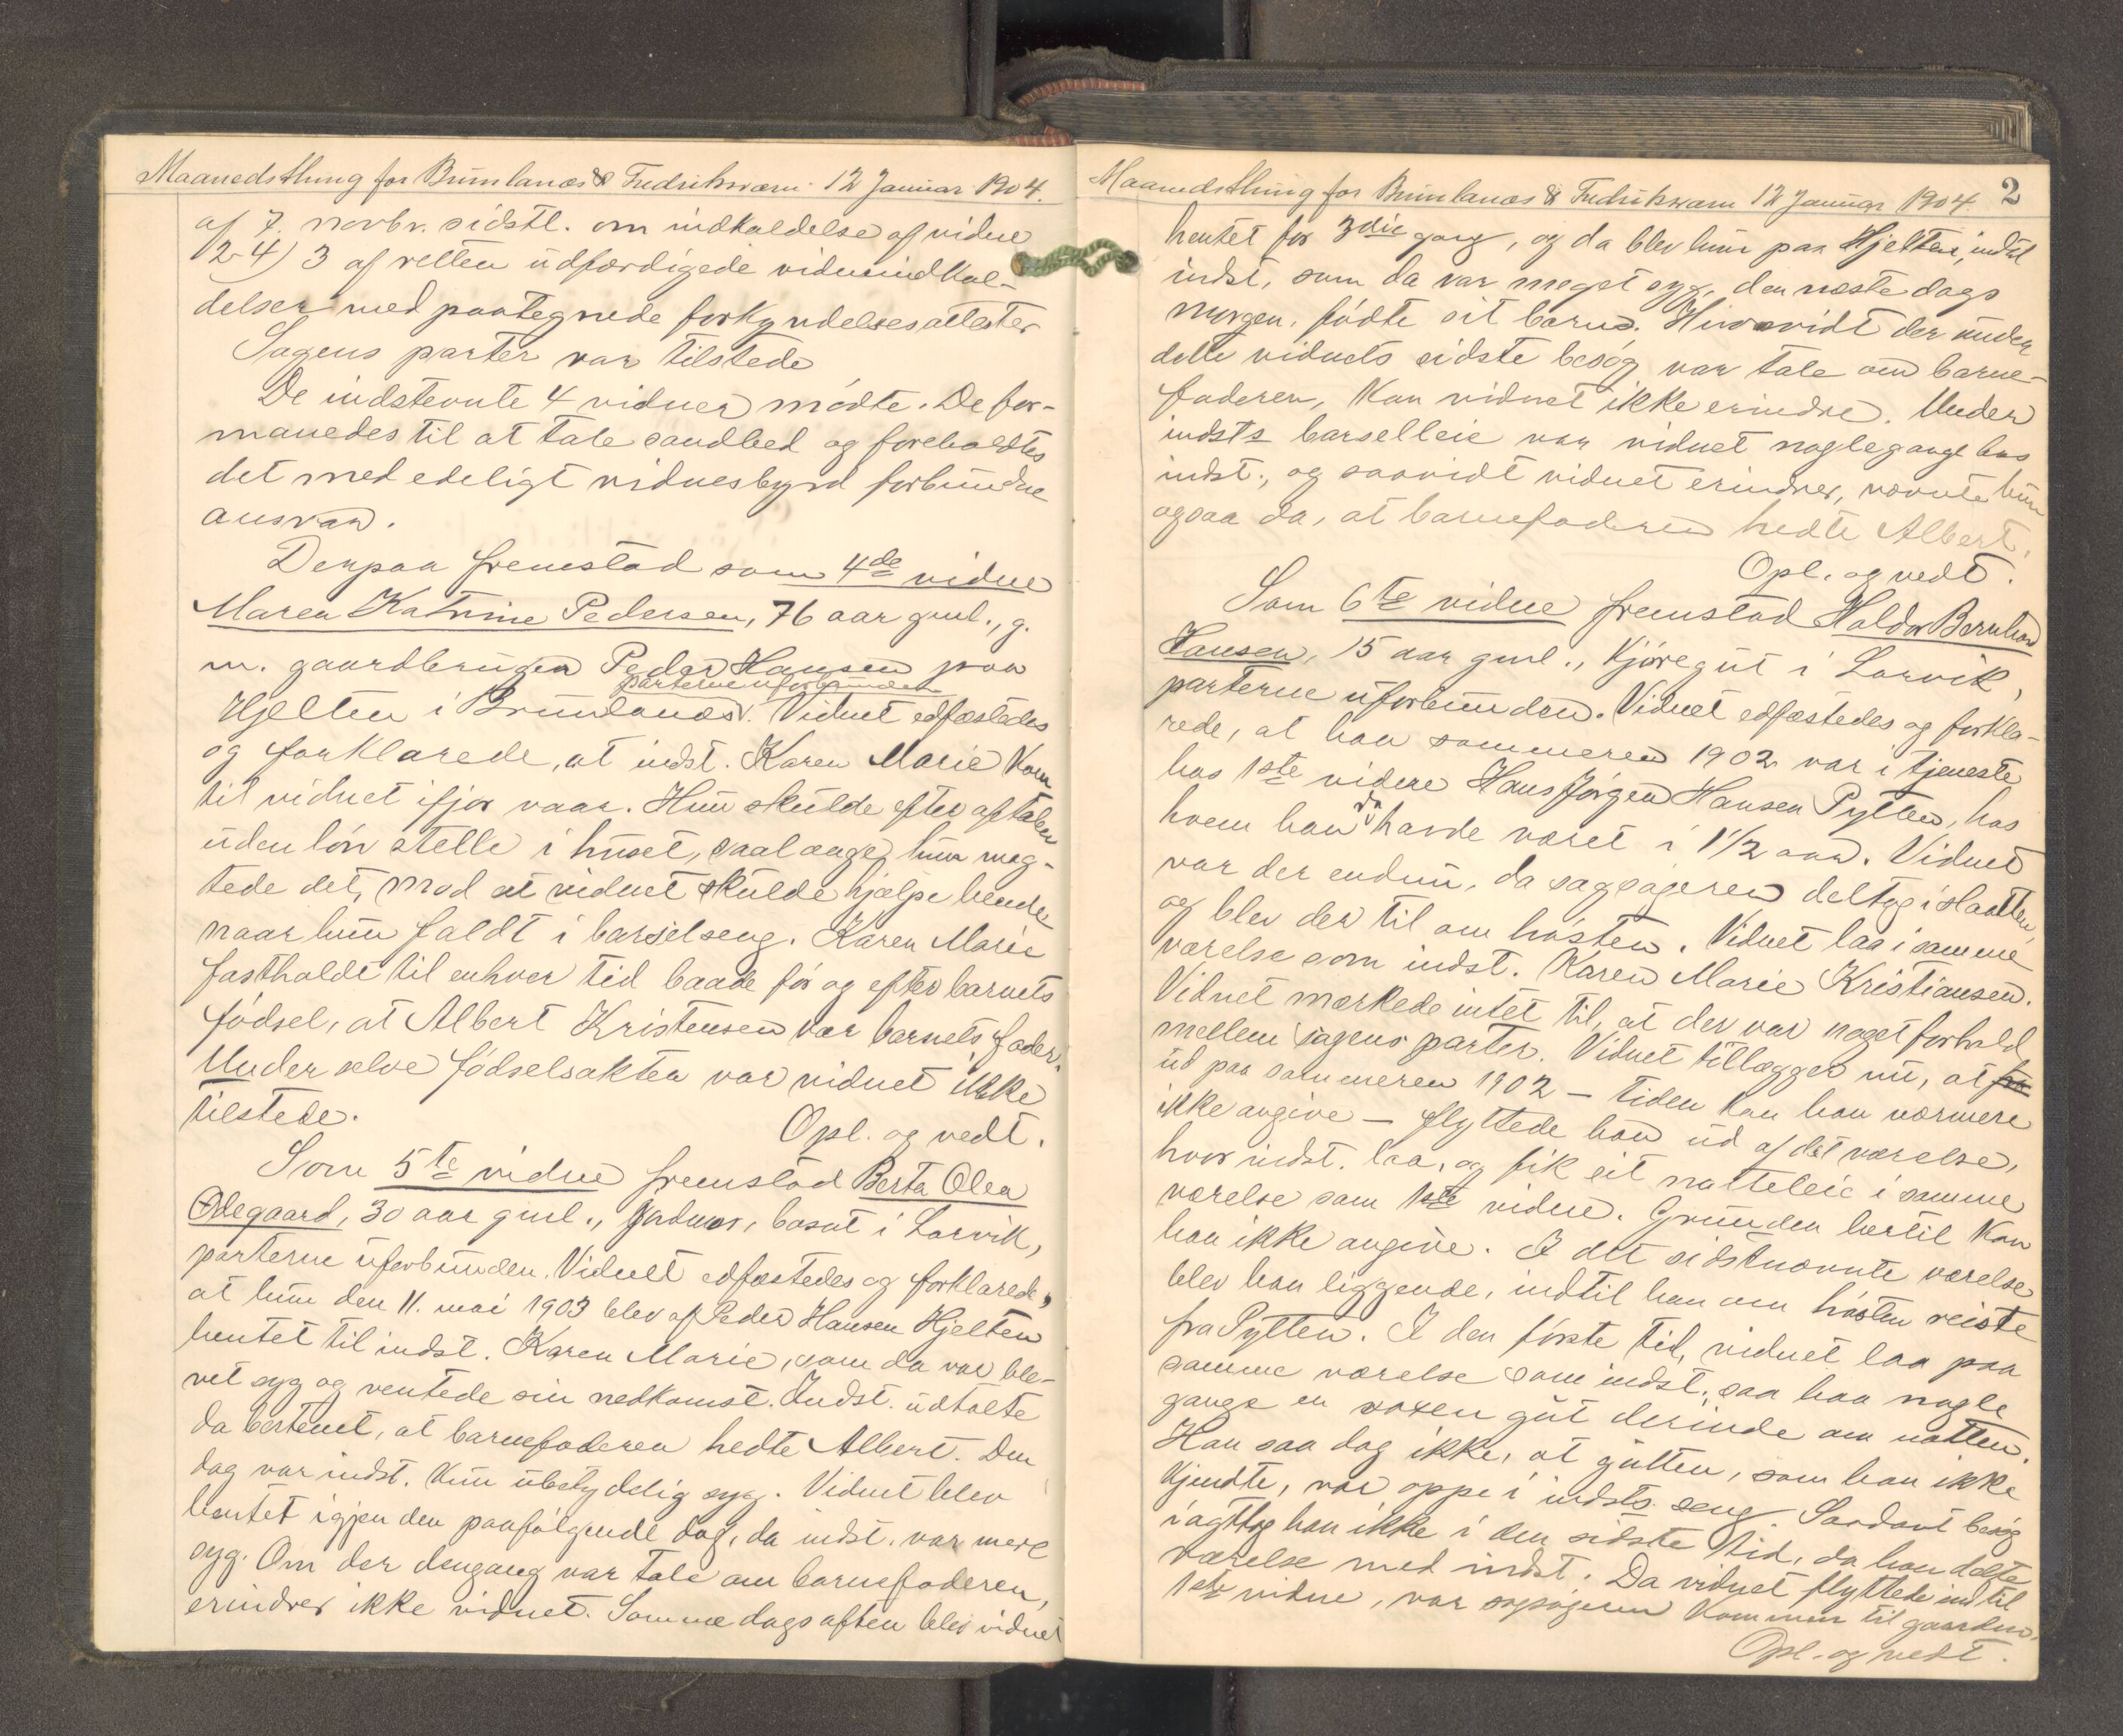 Maanedsthing for Brunlanæs & Fredriksværn 12 Januar 1904.
af 7. novbr. sidstl. om indkaldelse af vidne
2-4) 3 af retten udfærdigede vidneindkal-
delser med paategnede forkyndelsesattester
Sagens parter var tilstede
De indstevnte 4 vidner mødte. De for-
manedes til at tale sandhed og foreholdtes
det med edeligt vidnesbyrd forbundne
ansvar.
Derpaa fremstod som 4de vidne
Maren Katrine Pedersen, 76 aar gml., g.
m. gaardbruger Peder Hansen paa
parterne uforbunden
Hjelten i Brunlanæs. Vidnet edfæstedes
og forklarede, at indst. Karen Marie kom
til vidnet ifjor vaar. Hun skulde efter aftalen
uden løn stelle i huset, saalænge hun mag-
tede det, mod at vidnet skulde hjælpe hende
naar hun faldt i barselseng. Karen Marie
fastholdt til enhver tid baade før og efter barnets
fødsel, at Albert Kristensen var barnets fader.
Under selve fødselsakten var vidnet ikke
tilstede.
Opl. og vedt.
Som 5te vidne fremstod Berta Olea
Ødegaard, 30 aar gml., jordmor, bosat i Larvik,
parterne uforbunden. Vidnet edfæstedes og forklarede,
at hun den 11. mai 1903 blev af Peder Hansen Hjelten
hentet til indst. Karen Marie, som da var ble-
vet syg og ventede sin nedkomst. Indst. udtalte
da bestemt, at barnefaderen hedte Albert. Den
dag var indst. kun ubetydelig syg. Vidnet blev
hentet igjen den paafølgende dag, da indst. var mere
syg. Om der dengang var tale om barnefaderen,
erindrer ikke vidnet. Samme dags aften blev vidnet
Maanedsthing for Brunlanæs & Fredriksværn 12 Januar 1904. 2
hentet for 3die gang, og da blev hun paa Hjelten, indtil
indst., som da var meget syg, den næste dags
morgen, fødte sit barn. Hvorvidt der under
dette vidnets sidste besøg var tale om barne-
faderen, kan vidnet ikke erindre. Under
indsts barselleie var vidnet noglegange hos
indst., og saavidt vidnet erindrer, nævnte hun
ogsaa da, at barnefaderen hedte Albert.
Opl. og vedt.
Som 6te vidne fremstod Haldor Bernhard
Hansen, 15 aar gml., kjøregut i Larvik,
parterne uforbunden. Vidnet edfæstedes og forkla-
rede, at han sommeren 1902 var i tjeneste
hos 1ste vidne Hans Jørgen Hansen Pytten, hos
hvem han da havde været i 1 1/2 aar. Vidnet
var der endnu, da sagsøgeren deltog i slaatten,
og blev der til om høsten. Vidnet laa i samme
værelse som indst. Karen Marie Kristiansen.
Vidnet mærkede intet til, at der var noget forhold
mellem sagens parter. Vidnet tillægger nu, at
ud paa sommeren 1902 – tiden kan han nærmere
ikke angive – flyttede han ud af det værelse,
hvor indst. laa, og fik sit natteleie i samme
værelse som 1ste vidne. Grunden hertil kan
han ikke angive. I det sidstnævnte værelse
blev han liggende, indtil han om høsten reiste
fra Pytten. I den første tid, vidnet laa paa
samme værelse som indst., saa han nogle
gange en voxen gut derinde om natten.
Han saa dog ikke, at gutten, som han ikke
kjendte, var oppe i indsts seng. Saadant besøg
iagttog han ikke i den sidste tid, da han delte
værelse med indst. Da vidnet flyttede ind til
1ste vidne, var sagsøgeren kommen til gaarden.
Opl. og vedt.